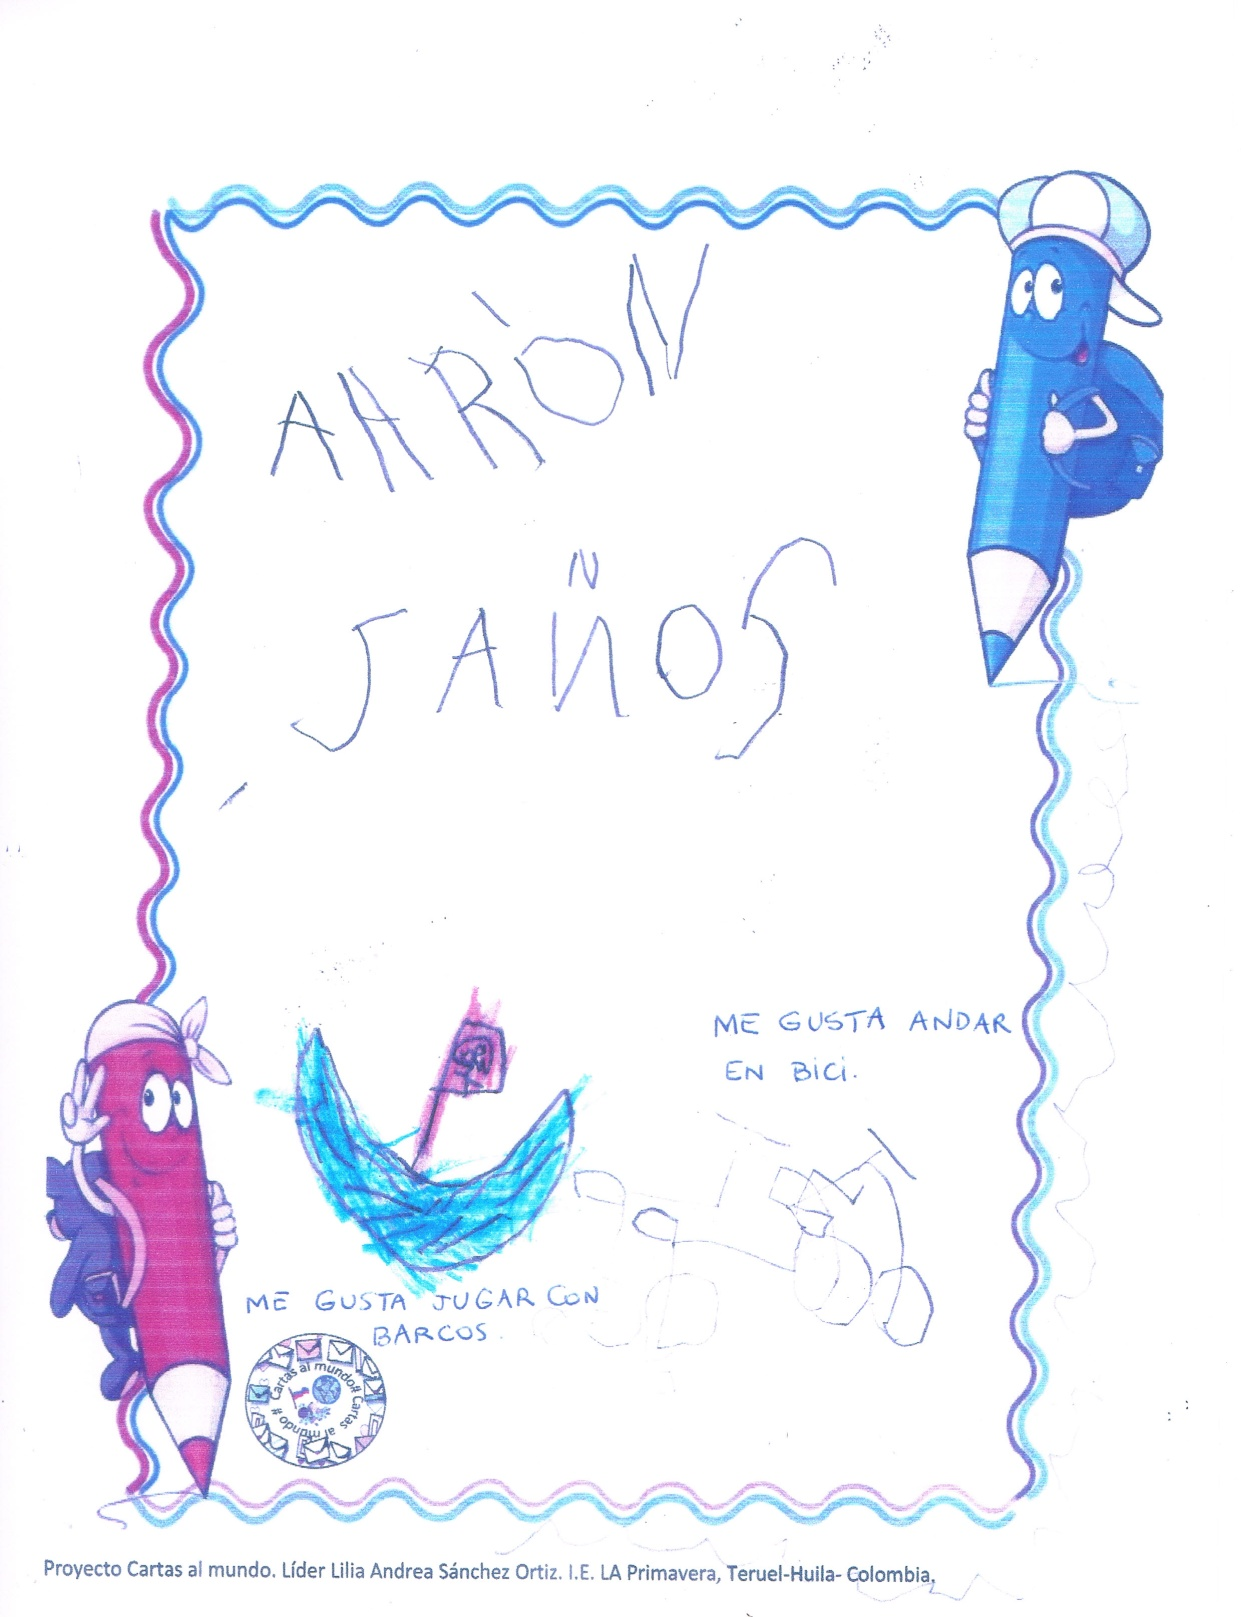 AHRÒN
5 AÑOS
ME GUSTA ANDAR
EN BICI.
ME GUSTA JUGAR CON
BARCOS.
Cartas al mundo# Cartas al mundo #
Proyecto Cartas al mundo. Líder Lilia Andrea Sánchez Ortiz. I.E. LA Primavera, Teruel-Huila- Colombia.